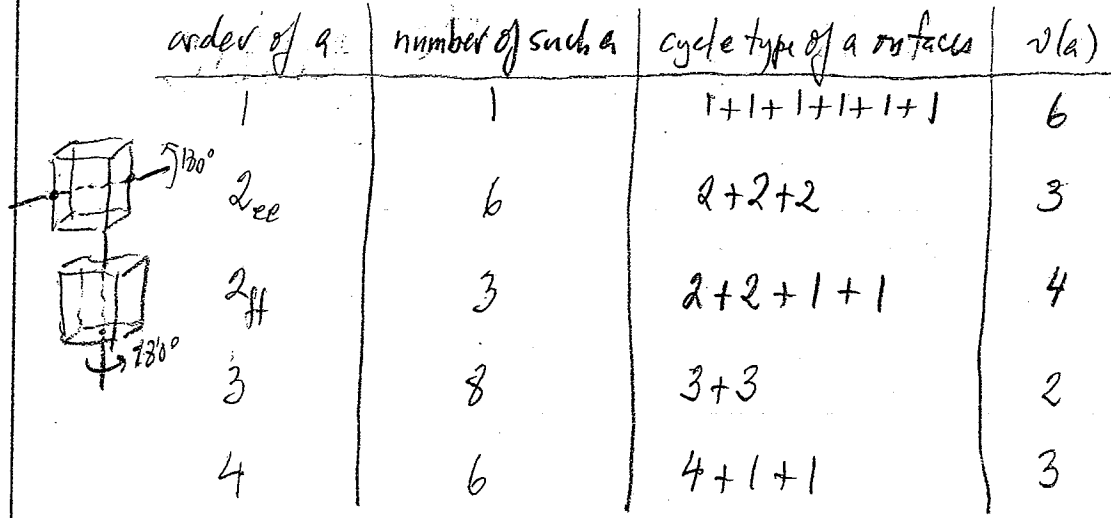 order of a number of such a cycle type of a on faces ν(a)
1 1 1+1+1+1+1+1 6
180°
2ee 6 2+2+2 3
2ff 3 2+2+1+1 4
180°
3 8 3+3 2
4 6 4+1+1 3